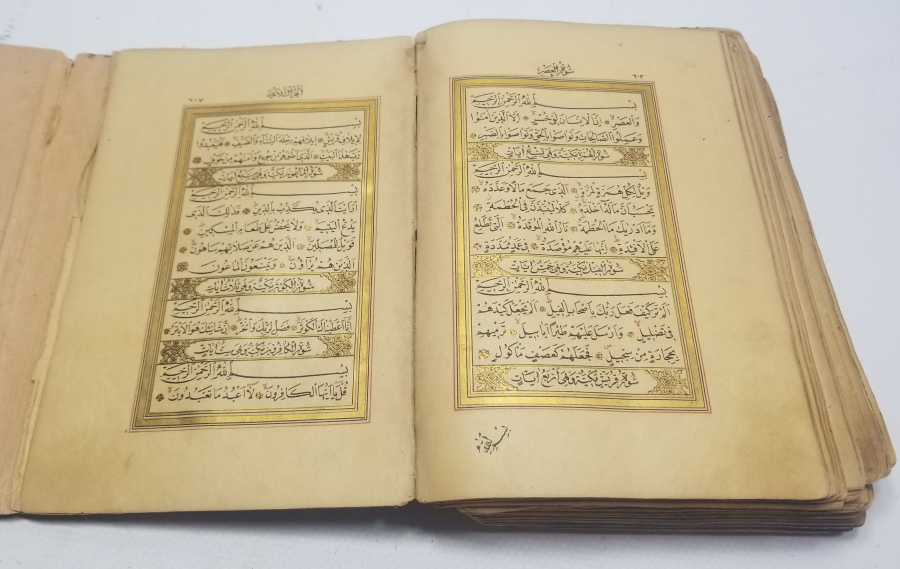 سورة العصر
٦٠٢
بسم الله الرحمن الرحيم
والعصر ان الانسان لفى خسر الا الذين امنوا
وعملوا الصالحات وتواصوا بالحق وتواصوا بالصبر
سورة الهمزة مكية وهى تسع ايات
بسم الله الرحمن الرحيم
ويل لكل همزة لمزة الذى جمع مالا وعدده
يحسب ان ماله اخلده كلا لينبذن فى الحطمة
وما ادريك ما الحطمة نار الله الموقدة التى تطلع
على الافئدة انها عليهم مؤصدة فى عمد ممددة
سورة الفيل مكية وهى خمس ايات
بسم الله الرحمن الرحيم
الم تر كيف فعل ربك باصحاب الفيل الم يجعل كيدهم
فى تضليل وارسل عليهم طيرا ابابيل ترميهم
بحجارة من سجيل فجعلهم كعصف ماكول
سورة قريش مكية وهى اربع ايات
بسم الله
٦٠٣
بسم الله الرحمن الرحيم
لايلاف قريش ايلافهم رحلة الشتاء والصيف فليعبدوا
رب هذا البيت الذى اطعمهم من جوع وامنهم من خوف
سورة الماعون مكية وهى سبع ايات
بسم الله الرحمن الرحيم
ارايت الذى يكذب بالدين فذلك الذى
يدع اليتيم ولا يحض على طعام المسكين
فويل للمصلين الذين هم عن صلاتهم ساهون
الذين هم يراؤن ويمنعون الماعون
سورة الكوثر مكية وهى ثلاث ايات
بسم الله الرحمن الرحيم
انا اعطيناك الكوثر فصل لربك وانحر ان شانئك هو الابتر
سورة الكافرون مكية وهى ست ايات
بسم الله الرحمن الرحيم
قل يا ايها الكافرون لا اعبد ما تعبدون